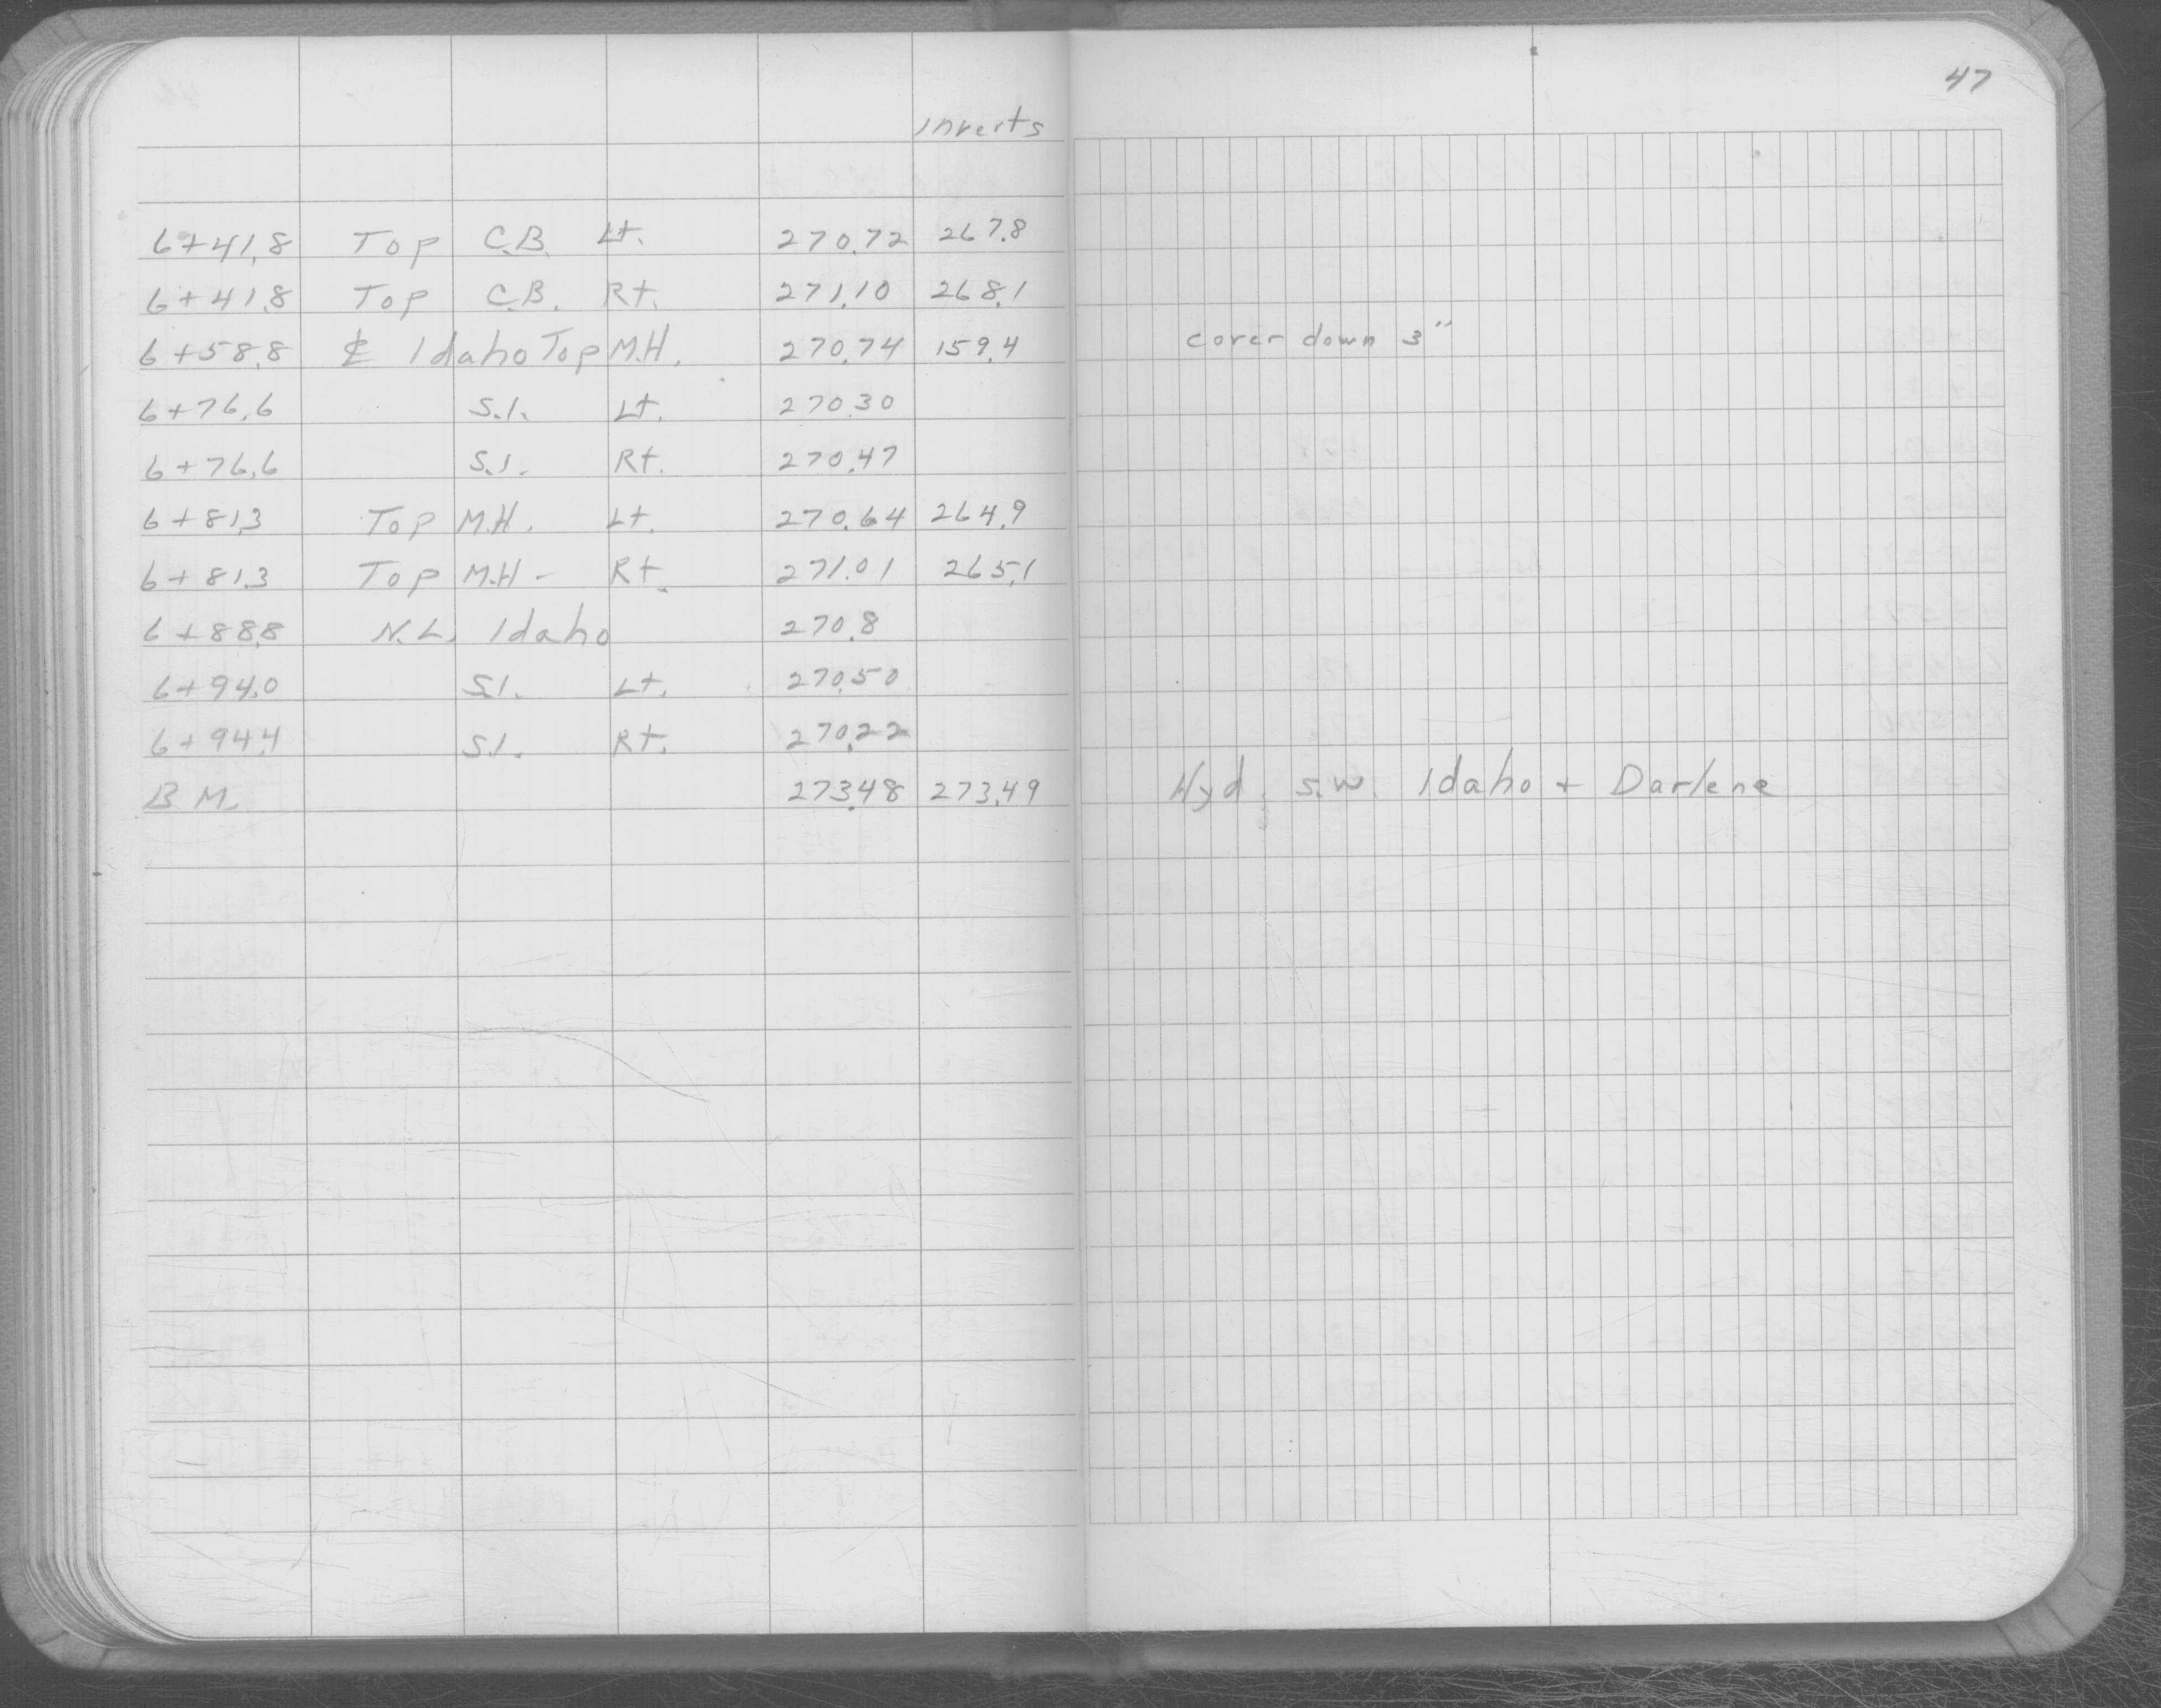 47
Inverts
6+41.8 Top C.B. Lt. 270.72 267.8
6+41.8 Top C.B. Rt. 271.10 268.1
6+58.8 ℄ Idaho Top M.H. 270.74 159.4 cover down 3"
6+76.6 S.I. Lt. 270.30
6+76.6 S.I. Rt. 270.47
6+81.3 Top M.H. Lt. 270.64 264.9
6+81.3 Top M.H. Rt. 271.01 265.1
6+88.8 N.L. Idaho 270.8
6+94.0 S.I. Lt. 270.50
6+94.4 S.I. Rt. 270.22
B.M. 273.48 273.49 Hyd. S.W. Idaho + Darlene